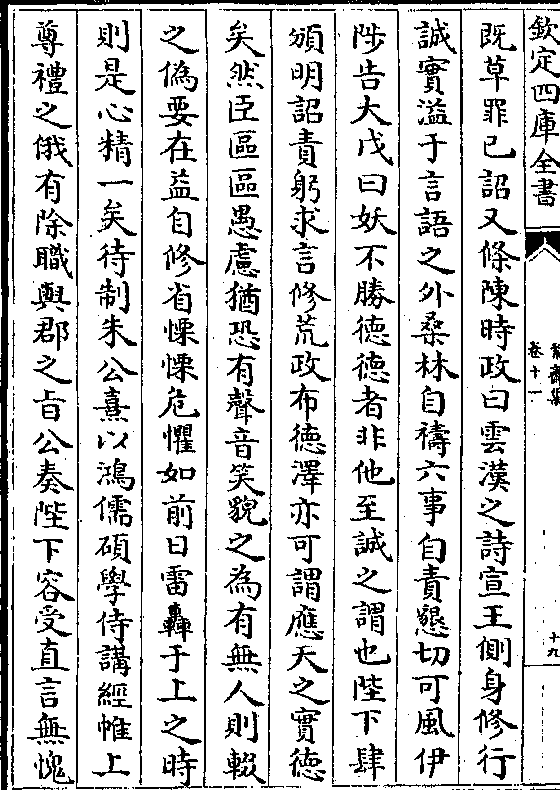 欽定四庫全書
卷十一
十九
既草罪已詔又條陳時政曰雲漢之詩宣王側身修行
誠實溢于言語之外桑林自禱六事自責懇切可風伊
陟告大戊曰妖不勝德德者非他至誠之謂也陛下肆
頒明詔責躬求言修荒政布德澤亦可謂應天之實德
矣然臣區區愚慮猶恐有聲音笑貌之為有無人則輟
之偽要在益自修省慄慄危懼如前日雷轟于上之時
則是心精一矣待制朱公熹以鴻儒碩學侍講經帷上
尊禮之俄有除職與郡之旨公奏陛下容受直言無愧